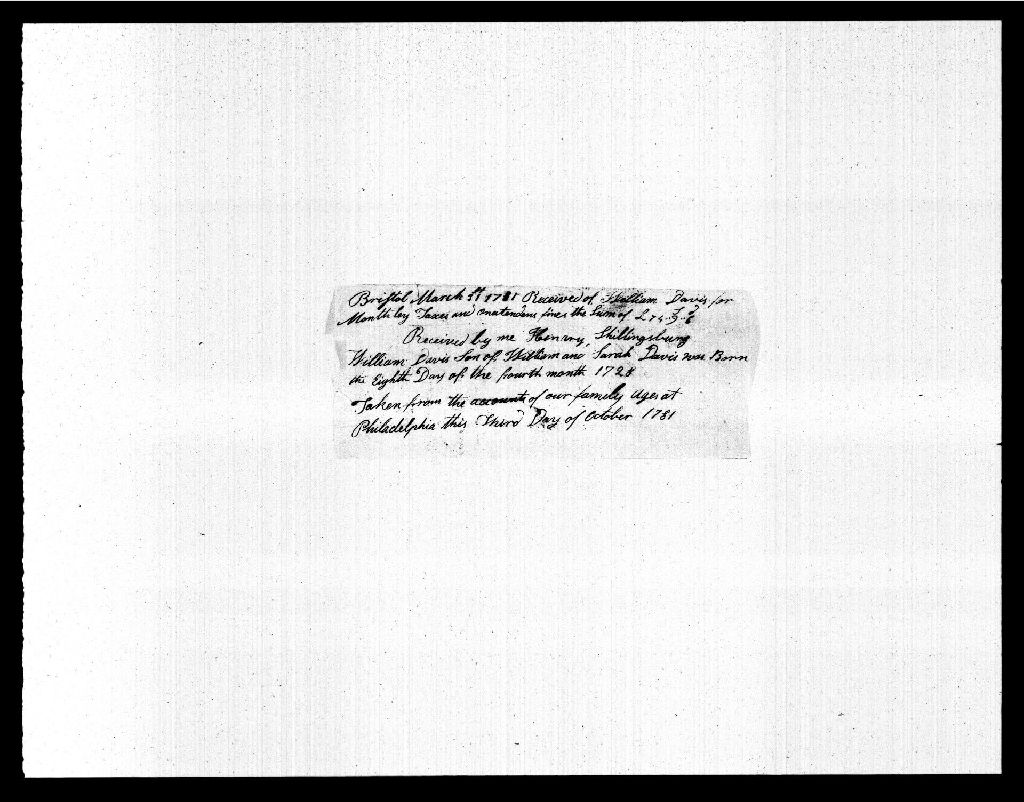 Bristol March 1781 Received of William Davis for
Monthley Taxes and fines the Sum of £
Received by me Henrry Shillingsburg
William Davis Son of William and Sarah Davis was Born
the Eighth Day of the fourth month 1728
Taken from the accounts of our family Ages at
Philadelphia this Third Day of October 1781